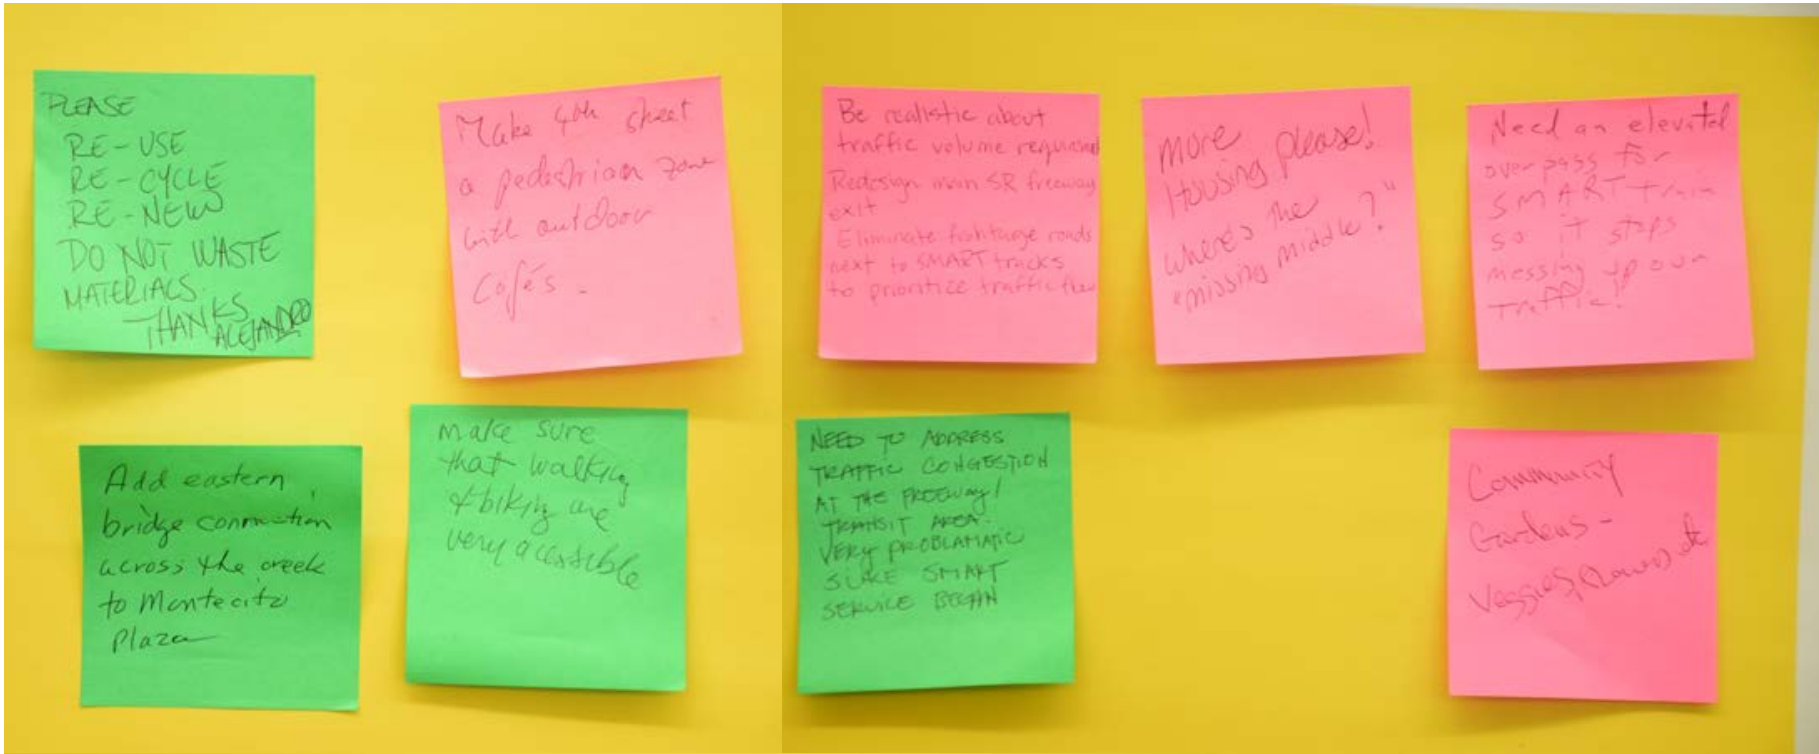 PLEASE
RE-USE
RE-CYCLE
RE-NEW
DO NOT WASTE
MATERIALS
THANKS
ALEJANDRO
Make 4th street
a pedestrian zone
with outdoor
Cafés.
Be realistic about
traffic volume required
Redesign main SR freeway
exit
Eliminate frontage roads
next to SMART tracks
to prioritize traffic flow
more
Housing please!
where's the
"missing middle?"
Need an elevated
overpass for
SMART train
so it stops
messing up our
traffic!
Add eastern
bridge connection
across the creek
to Montecito
Plaza
Make sure
that walking
& biking are
very accessible
NEED TO ADDRESS
TRAFFIC CONGESTION
AT THE FREEWAY/
TRANSIT AREA.
VERY PROBLAMATIC
SINCE SMART
SERVICE BEGAN
Community
Gardens -
Veggies, flowers, etc